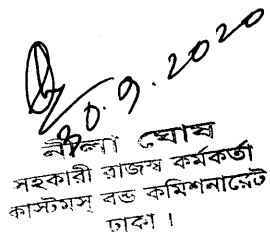 30.9.2020
নীলা ঘোষ
সহকারী রাজস্ব কর্মকর্তা
কাস্টমস্ বন্ড কমিশনারেট
ঢাকা।